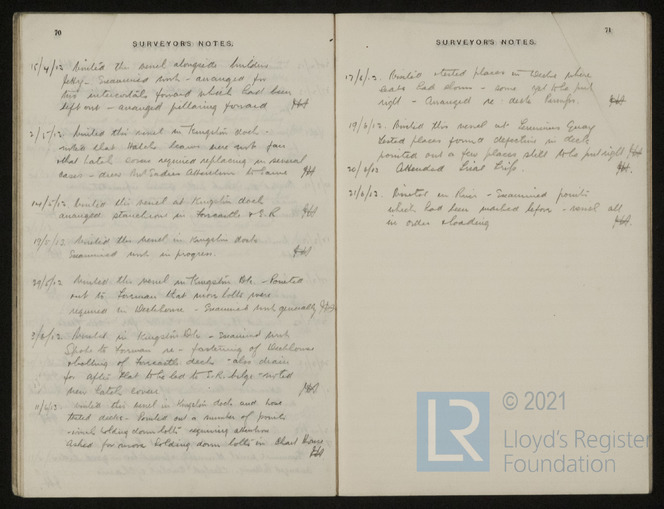 70
SURVEYOR'S NOTES.
15/4/12 Visited the vessel alongside builders
jetty - Examined work - arranged for
two intercostals forward which had been
left out - arranged pillaring forward
2/5/12 Visited this vessel in Kingston dock -
noted that Hatch beams were not fair
that hatch covers required replacing in several
cases - drew attention to same
14/5/12 Visited the vessel at Kingston dock
arranged stanchions in Forecastle & E.R
19/5/12 Visited the vessel in Kingston dock
Examined work in progress.
29/5/12 Visited the vessel in Kingston Dk. - Pointed
out to foreman that more bolts were
required in Deckhouse - Examined work generally
3/6/12 Visited in Kingston Dk - Examined work
Spoke to foreman re - fastening of Deckhouse
& bolting of forecastle deck - also drain
for after Peak to be led to E.R. bilge - noted
new hatch cover
11/6/12 Visited this vessel in Kingston dock and hose
tested decks - Pointed out a number of points
- winch holding down bolts requiring attention
Asked for more holding down bolts in Chart House
71
SURVEYOR'S NOTES.
17/6/12. Visited & tested places in decks where
leaks had shown - some yet to be put
right - Arranged re: deck pumps.
19/6/12. Visited this vessel at Quay
tested places found defective in deck
pointed out a few places still to be put right
20/6/12 Attended Trial Trip.
21/6/12. in River - Examined points
which had been marked before - vessel all
in order & loading
LR
© 2021
Lloyd's Register
Foundation